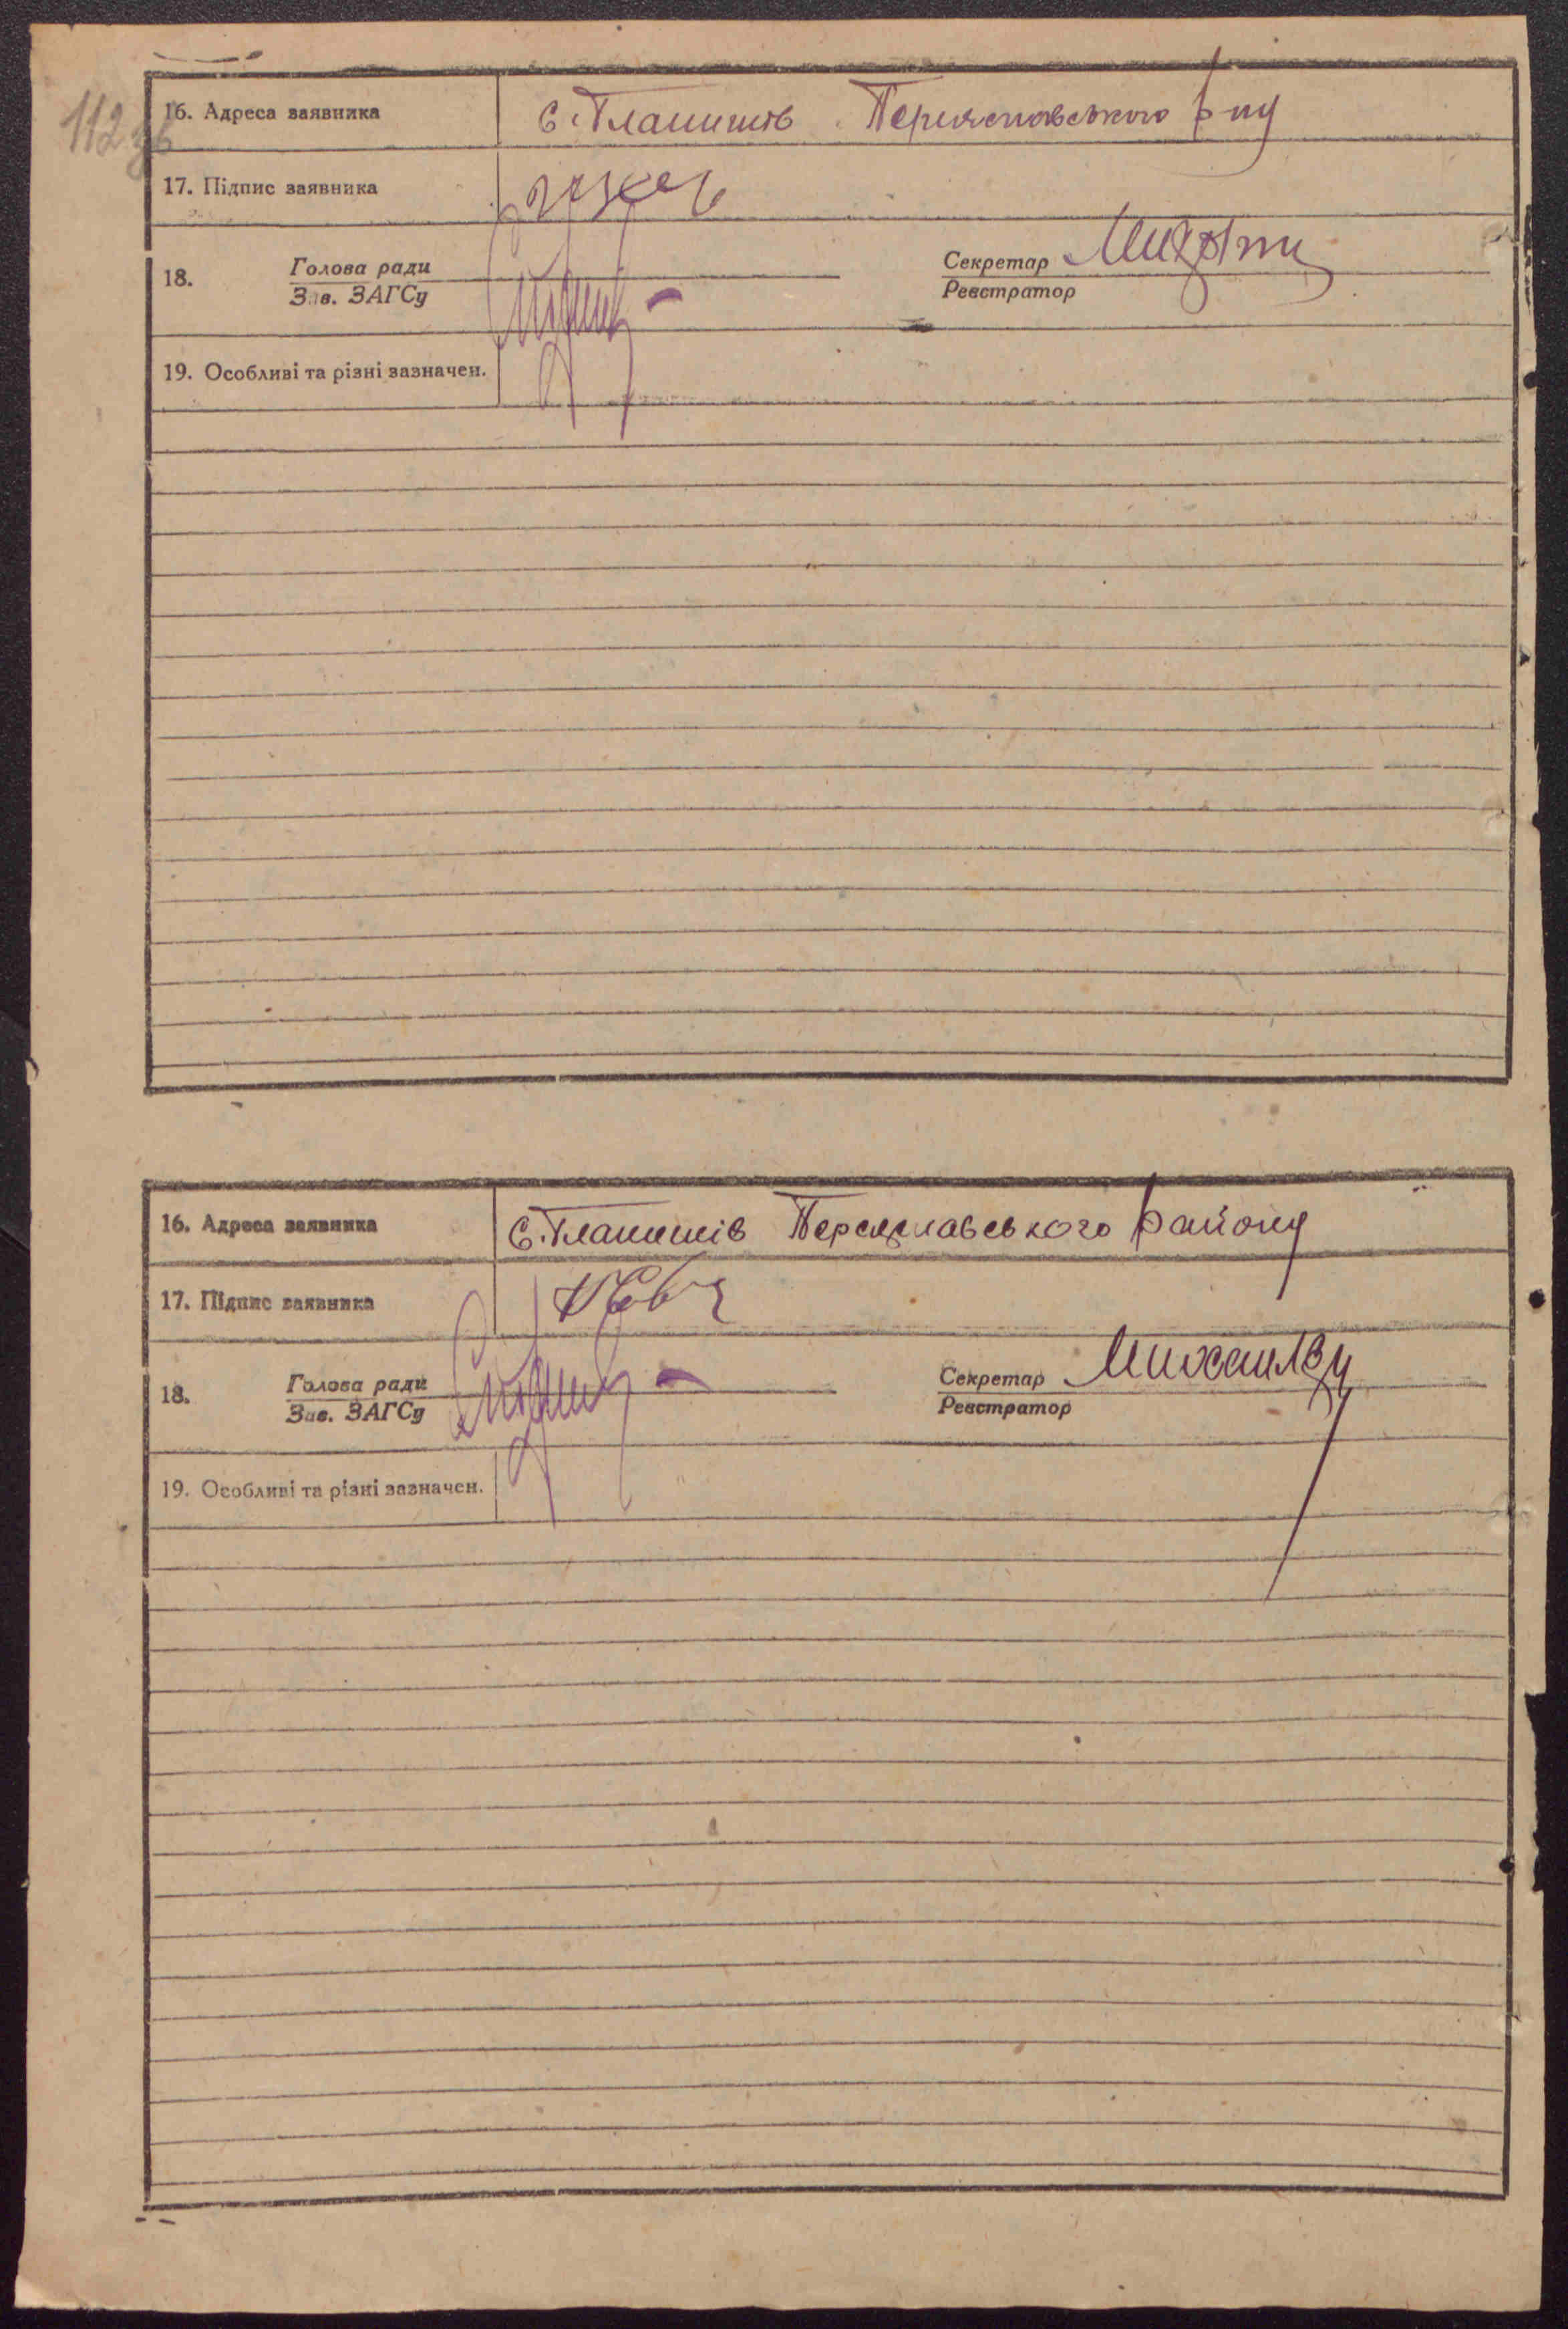 112 зв
16. Адреса заявника с. Гланишів Переяславського р-ну
17. Підпис заявника
18. Голова ради Секретар
Зав. ЗАГСу Реєстратор
19. Особливі та різні зазначен.
16. Адреса заявника с. Гланишів Переяславського району
17. Підпис заявника
18. Голова ради Секретар
Зав. ЗАГСу Реєстратор
19. Особливі та різні зазначен.